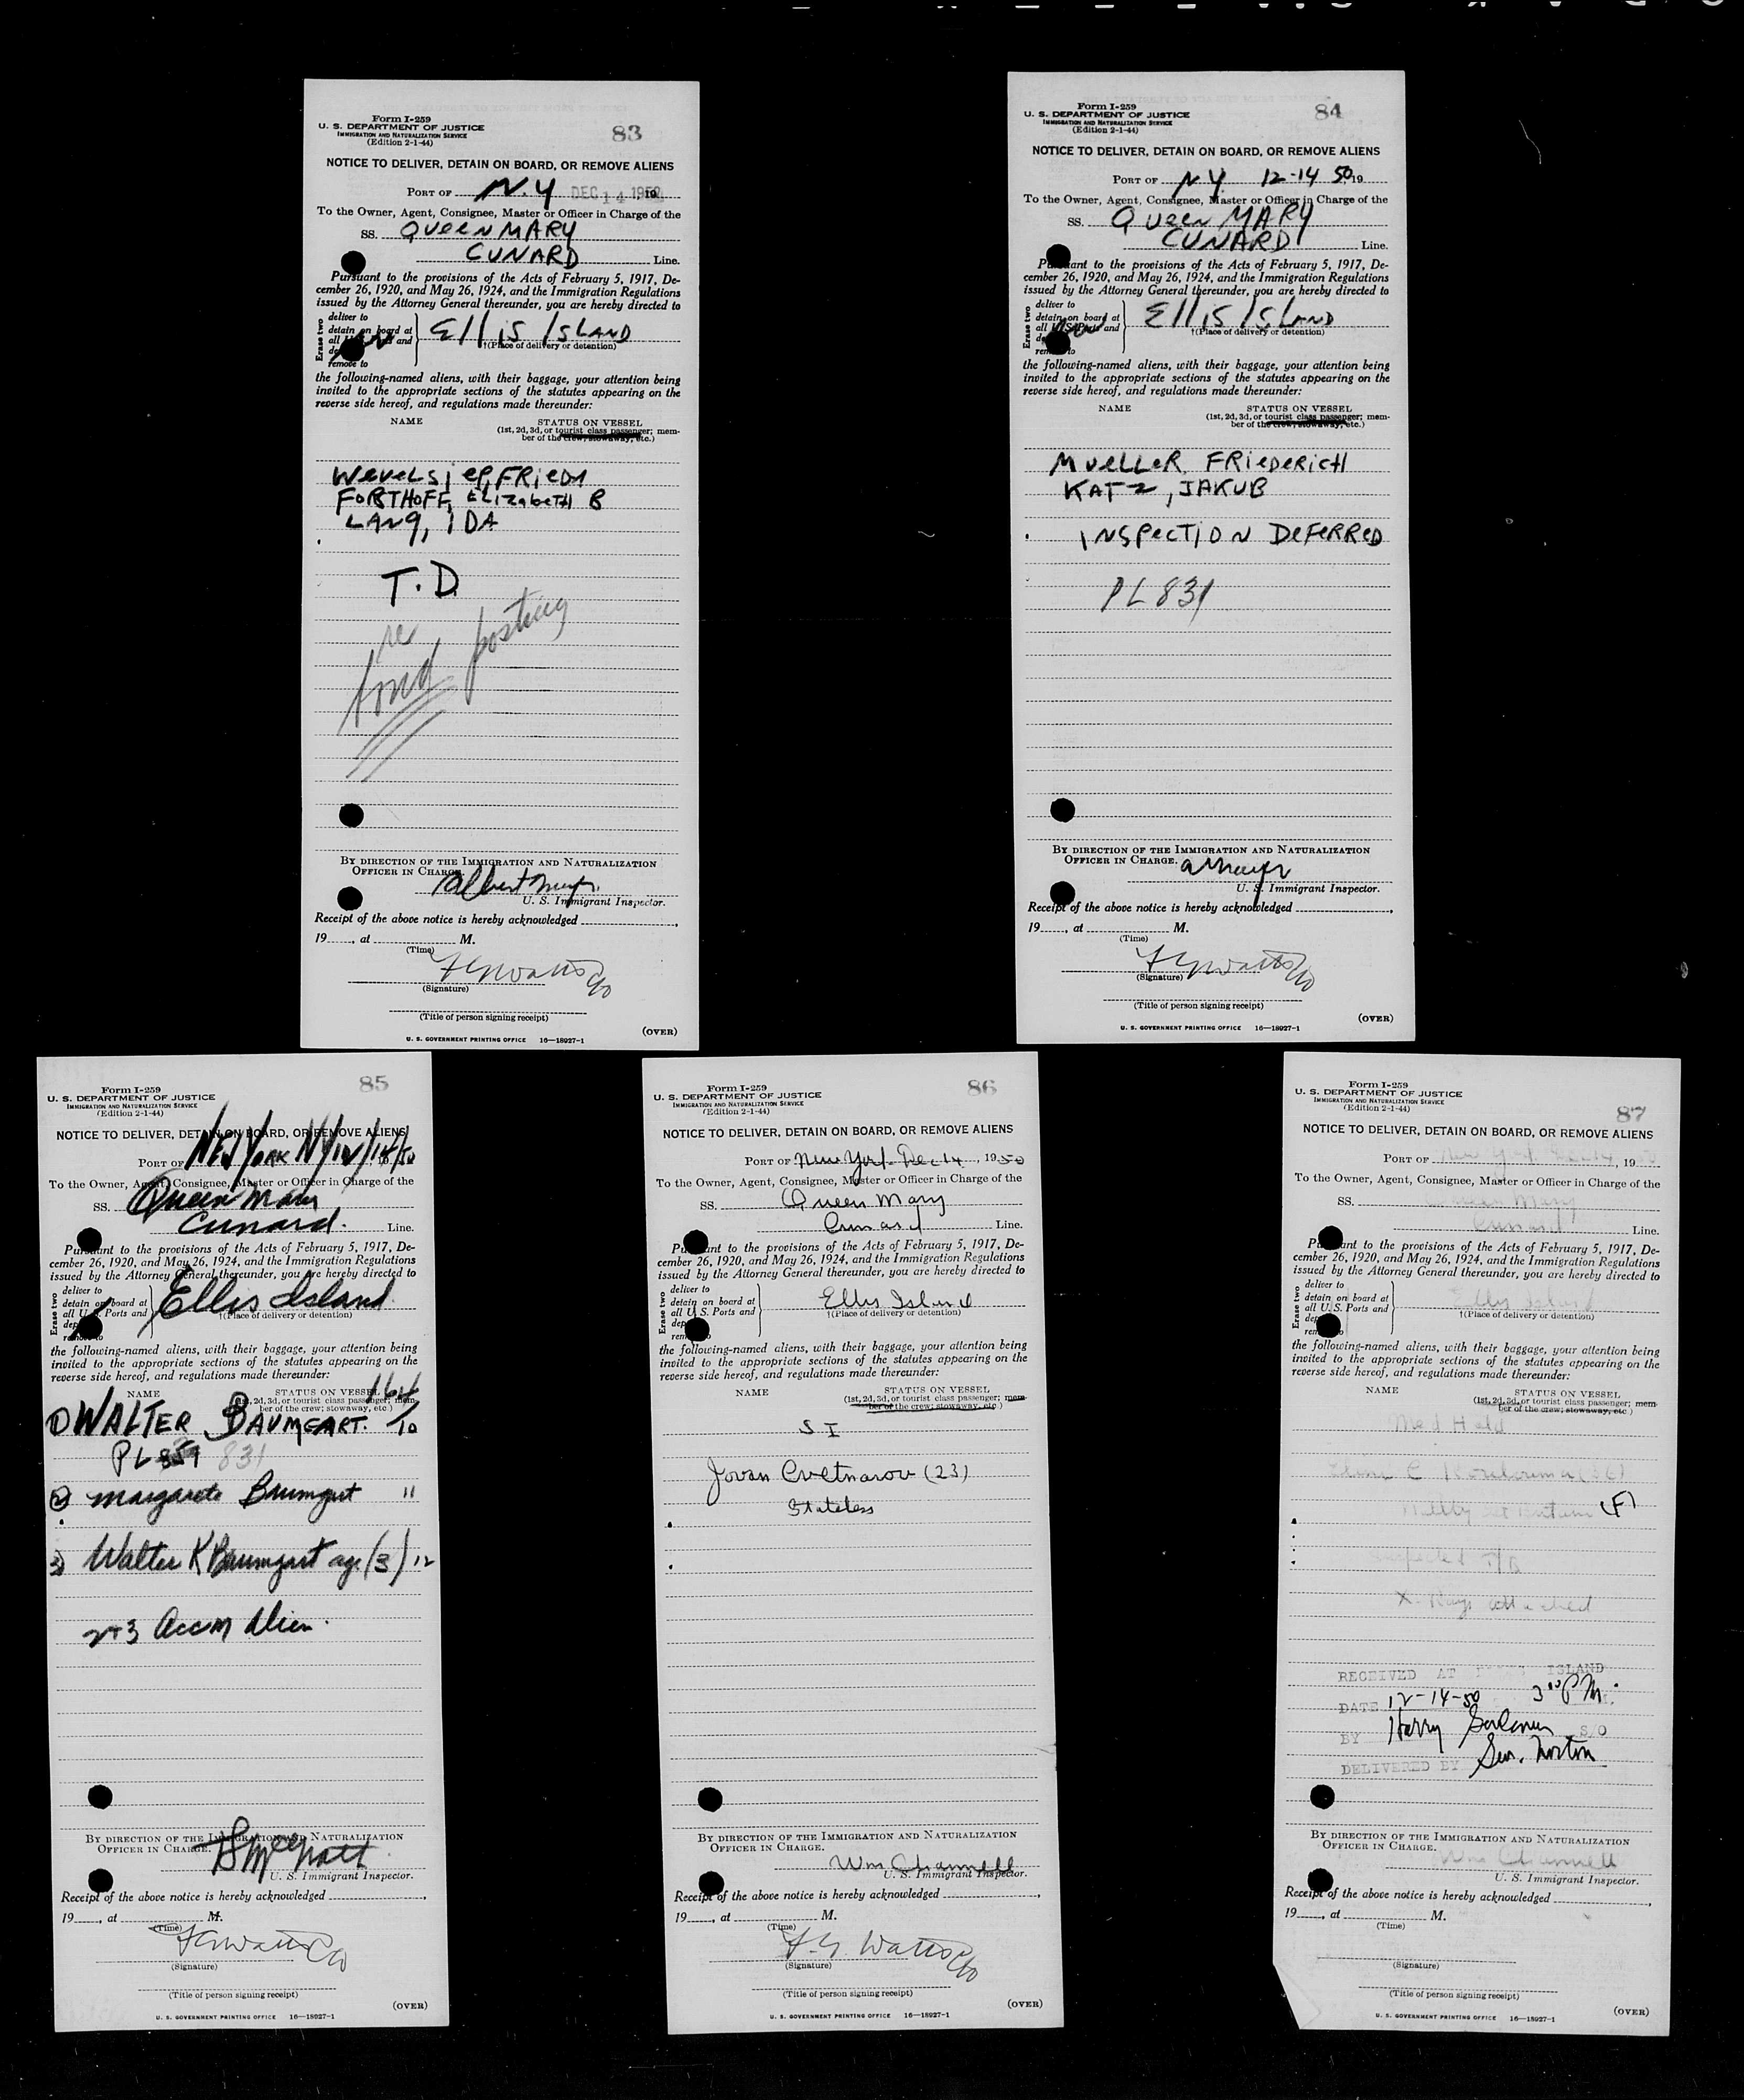 Form I-259
U. S. DEPARTMENT OF JUSTICE
IMMIGRATION AND NATURALIZATION SERVICE
(Edition 2-1-44)
83
NOTICE TO DELIVER, DETAIN ON BOARD, OR REMOVE ALIENS
PORT OF N.Y DEC 14 1950
To the Owner, Agent, Consignee, Master or Officer in Charge of the
SS. QUEEN MARY
CUNARD Line.
Pursuant to the provisions of the Acts of February 5, 1917, De-
cember 26, 1920, and May 26, 1924, and the Immigration Regulations
issued by the Attorney General thereunder, you are hereby directed to
Erase two
deliver to
detain on board at
all U. S. Ports and
remove to
Ellis Island
†(Place of delivery or detention)
the following-named aliens, with their baggage, your attention being
invited to the appropriate sections of the statutes appearing on the
reverse side hereof, and regulations made thereunder:
NAME STATUS ON VESSEL
(1st, 2d, 3d, or tourist class passenger; mem-
ber of the crew; stowaway, etc.)
WevelsieP, FRieDA
FORTHOFF, ELIZABETH B
LANG, IDA
T.D.
re
bond posting
BY DIRECTION OF THE IMMIGRATION AND NATURALIZATION
OFFICER IN CHARGE.
Albert
U. S. Immigrant Inspector.
Receipt of the above notice is hereby acknowledged
19____, at ____ M.
(Time)
F G Watts
(Signature)
(Title of person signing receipt)
(OVER)
U. S. GOVERNMENT PRINTING OFFICE 16—18927-1
Form I-259
U. S. DEPARTMENT OF JUSTICE
IMMIGRATION AND NATURALIZATION SERVICE
(Edition 2-1-44)
84
NOTICE TO DELIVER, DETAIN ON BOARD, OR REMOVE ALIENS
PORT OF NY 12-14 50 19
To the Owner, Agent, Consignee, Master or Officer in Charge of the
SS. QUEEN MARY
CUNARD Line.
Pursuant to the provisions of the Acts of February 5, 1917, De-
cember 26, 1920, and May 26, 1924, and the Immigration Regulations
issued by the Attorney General thereunder, you are hereby directed to
Erase two
deliver to
detain on board at
all U. S. Ports and
remove to
Ellis Island
†(Place of delivery or detention)
the following-named aliens, with their baggage, your attention being
invited to the appropriate sections of the statutes appearing on the
reverse side hereof, and regulations made thereunder:
NAME STATUS ON VESSEL
(1st, 2d, 3d, or tourist class passenger; mem-
ber of the crew; stowaway, etc.)
MUELLER, FRIEDERICH
KATZ, JAKUB
INSPECTION DEFERRED
PL 831
BY DIRECTION OF THE IMMIGRATION AND NATURALIZATION
OFFICER IN CHARGE.
U. S. Immigrant Inspector.
Receipt of the above notice is hereby acknowledged
19____, at ____ M.
(Time)
F G Watts
(Signature)
(Title of person signing receipt)
(OVER)
U. S. GOVERNMENT PRINTING OFFICE 16—18927-1
Form I-259
U. S. DEPARTMENT OF JUSTICE
IMMIGRATION AND NATURALIZATION SERVICE
(Edition 2-1-44)
85
NOTICE TO DELIVER, DETAIN ON BOARD, OR REMOVE ALIENS
PORT OF NEW YORK NY 12/14/50
To the Owner, Agent, Consignee, Master or Officer in Charge of the
SS. Queen Mary
Cunard. Line.
Pursuant to the provisions of the Acts of February 5, 1917, De-
cember 26, 1920, and May 26, 1924, and the Immigration Regulations
issued by the Attorney General thereunder, you are hereby directed to
Erase two
deliver to
detain on board at
all U. S. Ports and
remove to
Ellis Island
†(Place of delivery or detention)
the following-named aliens, with their baggage, your attention being
invited to the appropriate sections of the statutes appearing on the
reverse side hereof, and regulations made thereunder:
NAME STATUS ON VESSEL 164
(1st, 2d, 3d, or tourist class passenger; mem-
ber of the crew; stowaway, etc.)
① WALTER BAUMGART. 10
PL 831
② Margarete Baumgart 11
3) Walter K Baumgart age (3) 12
2+3 Accm Alien.
BY DIRECTION OF THE IMMIGRATION AND NATURALIZATION
OFFICER IN CHARGE.
U. S. Immigrant Inspector.
Receipt of the above notice is hereby acknowledged
19____, at ____ M.
(Time)
F G Watts
(Signature)
(Title of person signing receipt)
(OVER)
U. S. GOVERNMENT PRINTING OFFICE 16—18927-1
Form I-259
U. S. DEPARTMENT OF JUSTICE
IMMIGRATION AND NATURALIZATION SERVICE
(Edition 2-1-44)
86
NOTICE TO DELIVER, DETAIN ON BOARD, OR REMOVE ALIENS
PORT OF New York Dec 14, 1950
To the Owner, Agent, Consignee, Master or Officer in Charge of the
SS. Queen Mary
Cunard Line.
Pursuant to the provisions of the Acts of February 5, 1917, De-
cember 26, 1920, and May 26, 1924, and the Immigration Regulations
issued by the Attorney General thereunder, you are hereby directed to
Erase two
deliver to
detain on board at
all U. S. Ports and
Ellis Island
†(Place of delivery or detention)
the following-named aliens, with their baggage, your attention being
invited to the appropriate sections of the statutes appearing on the
reverse side hereof, and regulations made thereunder:
NAME STATUS ON VESSEL
(1st, 2d, 3d, or tourist class passenger; mem-
ber of the crew; stowaway, etc.)
S I
Jovan Cvetnarov (23)
Stateless
BY DIRECTION OF THE IMMIGRATION AND NATURALIZATION
OFFICER IN CHARGE.
Wm Channell
U. S. Immigrant Inspector.
Receipt of the above notice is hereby acknowledged
19____, at ____ M.
(Time)
F. G. Watts
(Signature)
(Title of person signing receipt)
(OVER)
U. S. GOVERNMENT PRINTING OFFICE 16—18927-1
Form I-259
U. S. DEPARTMENT OF JUSTICE
IMMIGRATION AND NATURALIZATION SERVICE
(Edition 2-1-44)
87
NOTICE TO DELIVER, DETAIN ON BOARD, OR REMOVE ALIENS
PORT OF New York Dec 14, 1950
To the Owner, Agent, Consignee, Master or Officer in Charge of the
SS. Queen Mary
Cunard Line.
Pursuant to the provisions of the Acts of February 5, 1917, De-
cember 26, 1920, and May 26, 1924, and the Immigration Regulations
issued by the Attorney General thereunder, you are hereby directed to
Erase two
deliver to
detain on board at
all U. S. Ports and
Ellis Island
†(Place of delivery or detention)
the following-named aliens, with their baggage, your attention being
invited to the appropriate sections of the statutes appearing on the
reverse side hereof, and regulations made thereunder:
NAME STATUS ON VESSEL
(1st, 2d, 3d, or tourist class passenger; mem-
ber of the crew; stowaway, etc.)
Med Held
(F)
Suspected T/B
X-Rays attached
RECEIVED AT ISLAND
DATE 12-14-50 3 00 P M.
BY Harry S/O
DELIVERED BY Norton
BY DIRECTION OF THE IMMIGRATION AND NATURALIZATION
OFFICER IN CHARGE.
Wm Channell
U. S. Immigrant Inspector.
Receipt of the above notice is hereby acknowledged
19____, at ____ M.
(Time)
(Signature)
(Title of person signing receipt)
(OVER)
U. S. GOVERNMENT PRINTING OFFICE 16—18927-1